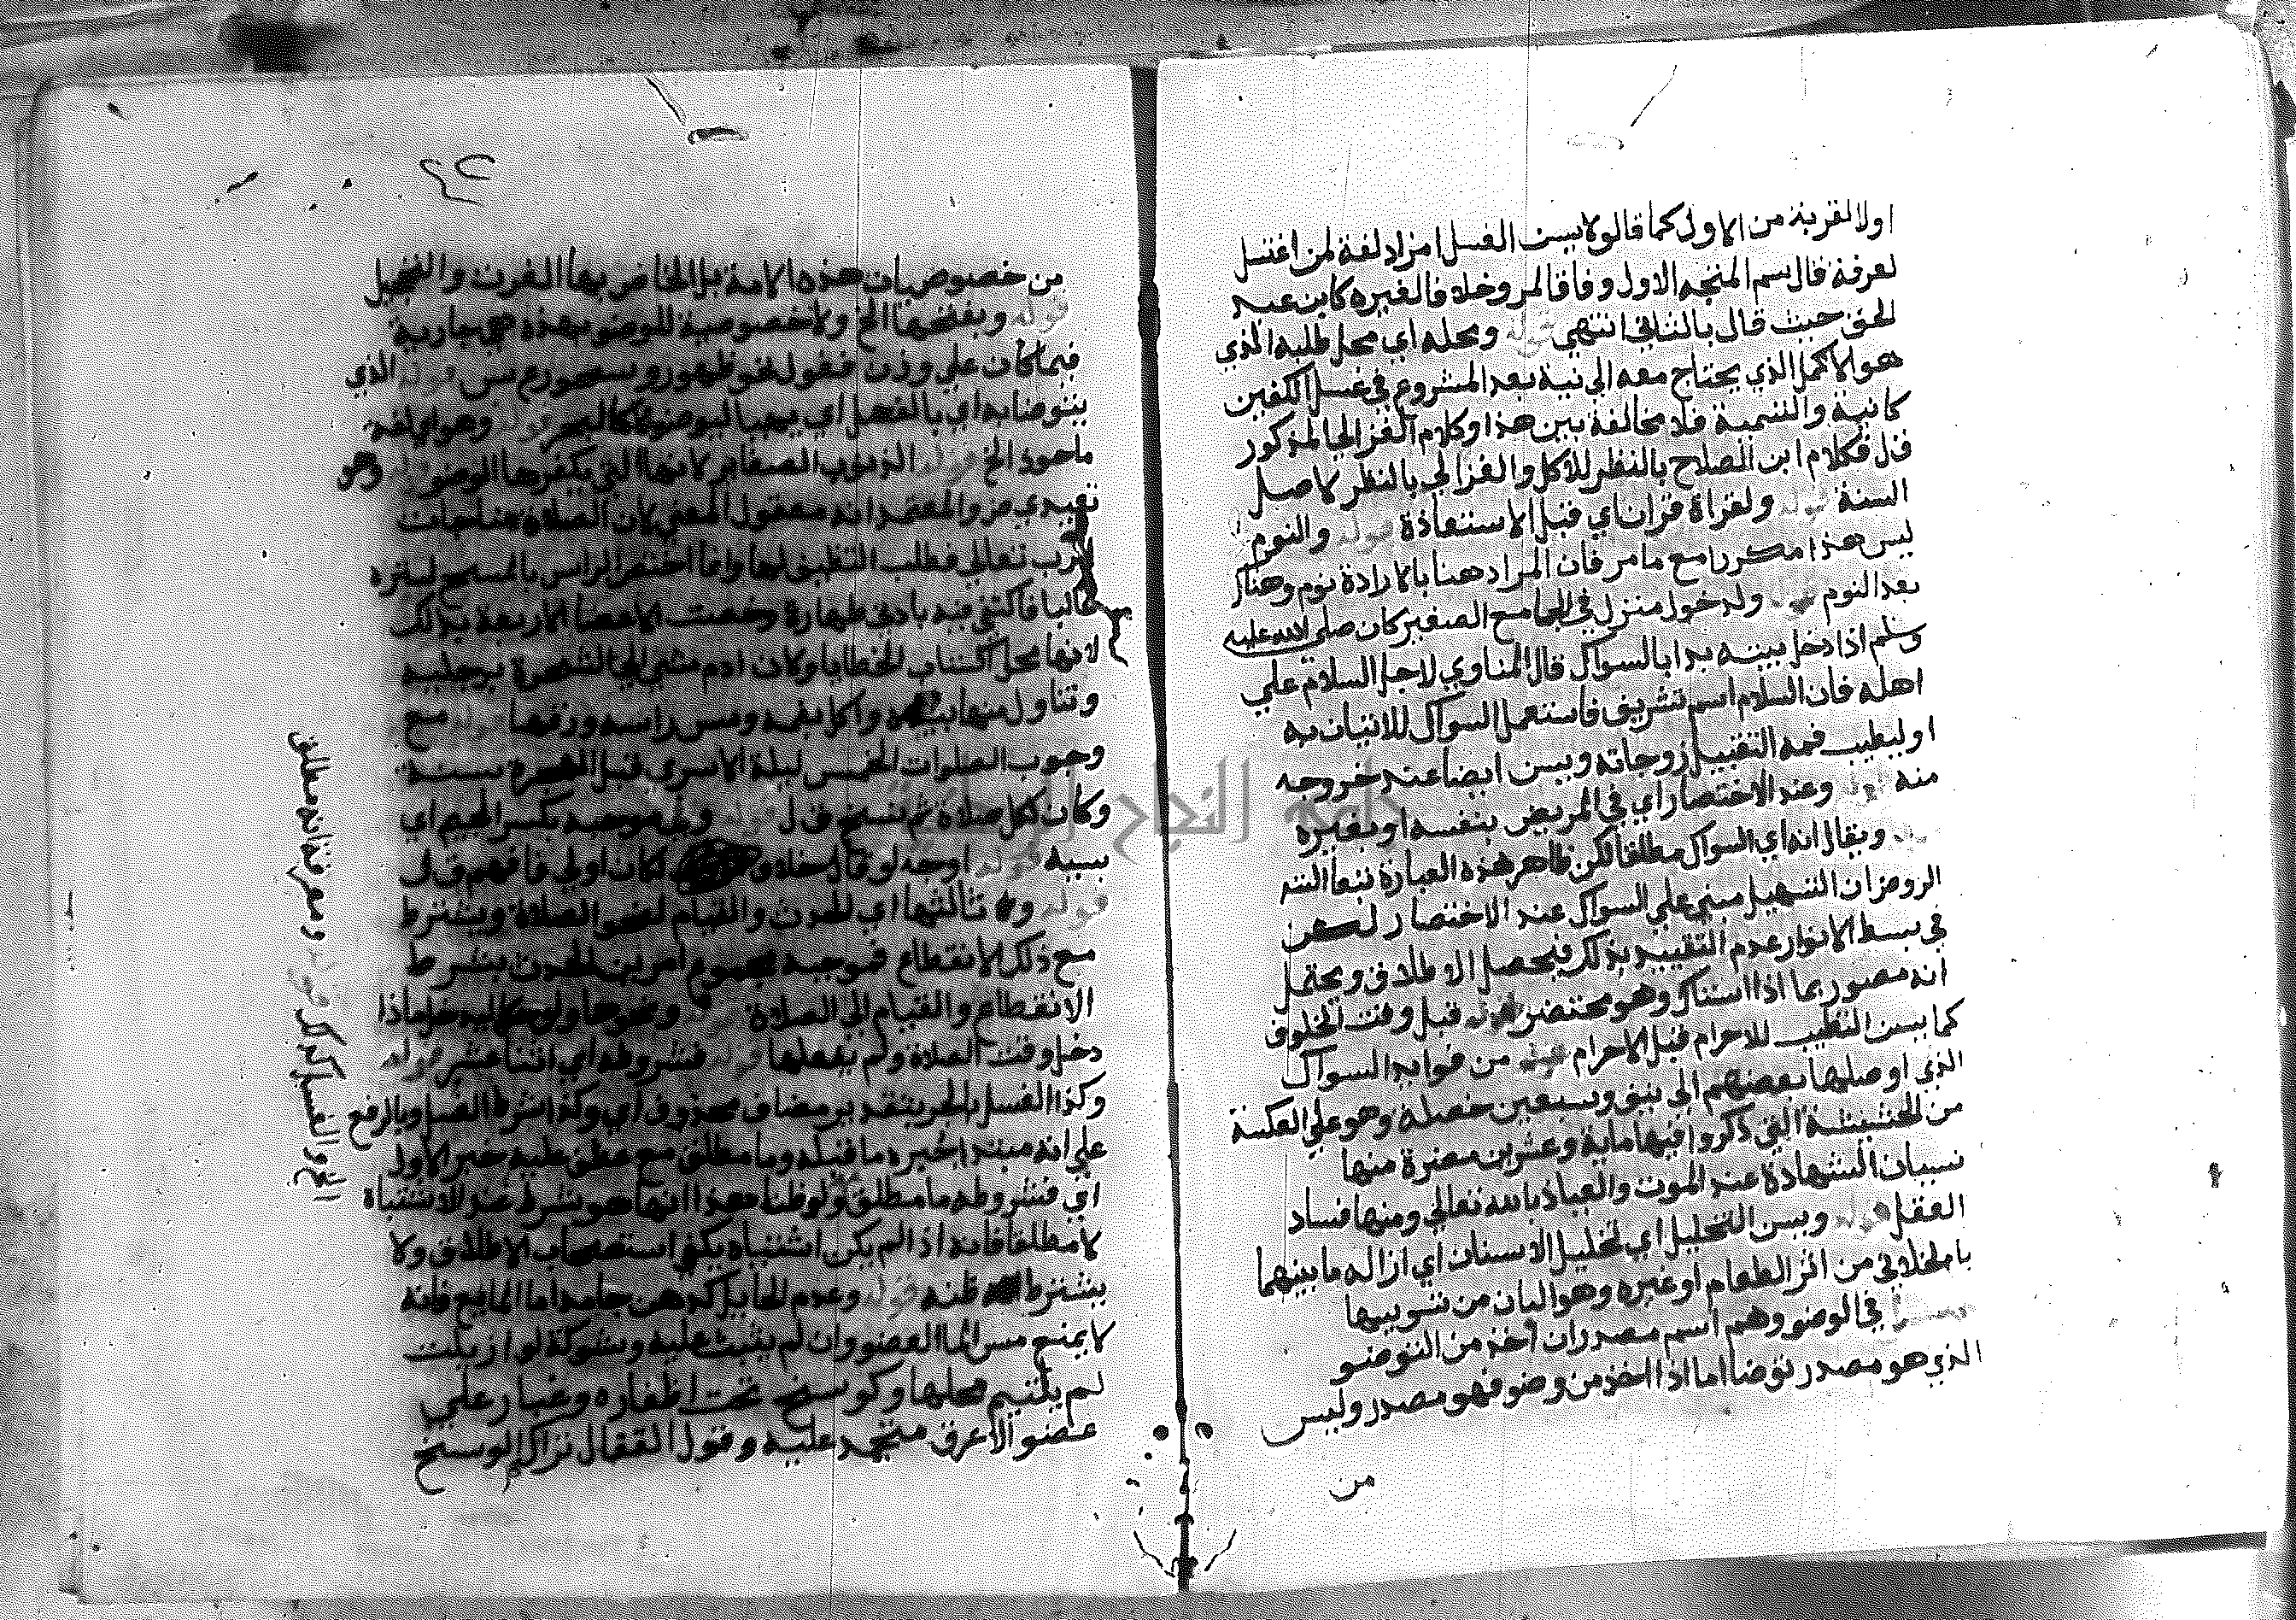 اولا لقربة من الاول كما قالو لا يسن الغسل لمزدلفة لمن اغتسل
لعرفة قال سم المتجه الاول وفاقا لمر وخلافا لغيره كابن عبد
الحق حيث قال بالثاني انتهى قوله ومحله اي محل طلبه الذي
هو الاكمل الذي يحتاج معه الى نية بعد الشروع في غسل الكفين
كالنية والتسمية فلا مخالفة بين هذا وكلام الغزالي المذكور
ق ل فكلام ابن الصلاح بالنظر للاكل والغزالي بالنظر لاصل
السنة قوله ولقراة قران اي قبل الاستعاذة قوله والنوم
ليس هذا مكررا مع ما مر فان المراد هنا بالارادة نوم وهناك
بعد النوم قوله ولدخول منزل في الجامع الصغير كان صلى الله عليه
وسلم اذا دخل بيته بدا بالسواك قال المناوي لاجل السلام علي
اهله فان السلام اسم شريف فاستعمل السواك للاتيان به
او ليطيب فمه لتقبيل زوجاته ويسن ايضا عند خروجه
منه قوله وعند الاحتضار اي في المريض بنفسه او بغيره
ويقال انه اي السواك مطلقا لكن ظاهر هذه العبارة
الروح ان التسهيل مبني علي السواك عند الاحتضار لكن
في بسط الانوار عدم التقييد بذلك فيحصل الاطلاق ويحتمل
انه مصور بما اذا استاك وهو محتضر قوله قبل وقت الخلوف
كما يسن التطيب للاحرام قبل الاحرام قوله من فوايد السواك
الذي اوصلها بعضهم الى نيف وسبعين خصلة وهو علي العكس
من الحشيشة التي ذكروا فيها ماية وعشرين مضرة منها
نسيان الشهادة عند الموت والعياذ بالله تعالي ومنها فساد
العقل قوله ويسن التخليل اي تخليل الاسنان اي ازالة ما بينهما
من اثر الطعام او غيره وهو
في الوضو وهو اسم مصدر ان اخذ من التوضو
الذي هو مصدر توضا اما اذا اخذ من وضو فهو مصدر وليس
من
من خصوصيات هذه الامة بل الخاص بها الغرة والتحجيل
قوله وبفتحها الخ ولا خصوصية للوضو بهذه بل هي جارية
فيما كان علي وزن فعول نحو طهور وسحور ع ش قوله الذي
يتوضا به اي بالفعل اي يهيا للوضو لا كالبحر قوله وهو اي لغة
ماخوذ الخ قوله الذنوب الصغاير لانها التي يكفرها الوضو قوله وهو
تعبدي مر والمعتمد انه معقول المعني لان الصلاة مناجات
الرب تعالي فطلب التنظيف لها وانما اختص الراس بالمسح لستره
غالبا فاكتفي فيه بادني طهارة وخصت الاعضا الاربعة بذلك
لانها محل اكتساب الخطايا ولان ادم مشي الي الشجرة برجليه
وتناول منها بيده واكل بفمه ومس راسه ورقها قوله مع
وجوب الصلوات الخمس ليلة الاسري قبل الهجرة بسنة
وكان لكل صلاة ثم نسخ ق ل قوله وفي موجبه بكسر الجيم اي
سببه قوله اوجه لو قال خلاف لكان اولي فافهم ق ل
قوله ثالثها اي الحدث والقيام لنحو الصلاة ويشترط
مع ذلك الانقطاع فموجبه مجموع امرين الحدث بشرط
الانقطاع والقيام الي الصلاة قوله ونحوها ولو حكما ليدخل ما اذا
دخل وقت الصلاة ولم يفعلها قوله فشروطه اي اثنا عشر قوله
وكذا الغسل بالجر بتقدير مضاف محذوف اي وكذا شرط الغسل وبالرفع
علي انه مبتدا خبره ما قبله وما مطلق مع عطف عليه خبر الاول
اي فشروطه ما مطلق ولو ظنا هذا انما هو شرط عند الاشتباه
لا مطلقا فانه اذا لم يكن اشتباه يكفي استصحاب الاطلاق ولا
يشترط ظنه قوله وعدم الحايل كدهن جامد اما المايع فانه
لا يمنع مس الما العضو وان لم يثبت عليه وشوكة لو ازيلت
لم يلتيم محلها وكوسخ تحت اظفاره وغبار علي
عضو لا عرق متجمد عليه وقول القفال تراكم الوسخ